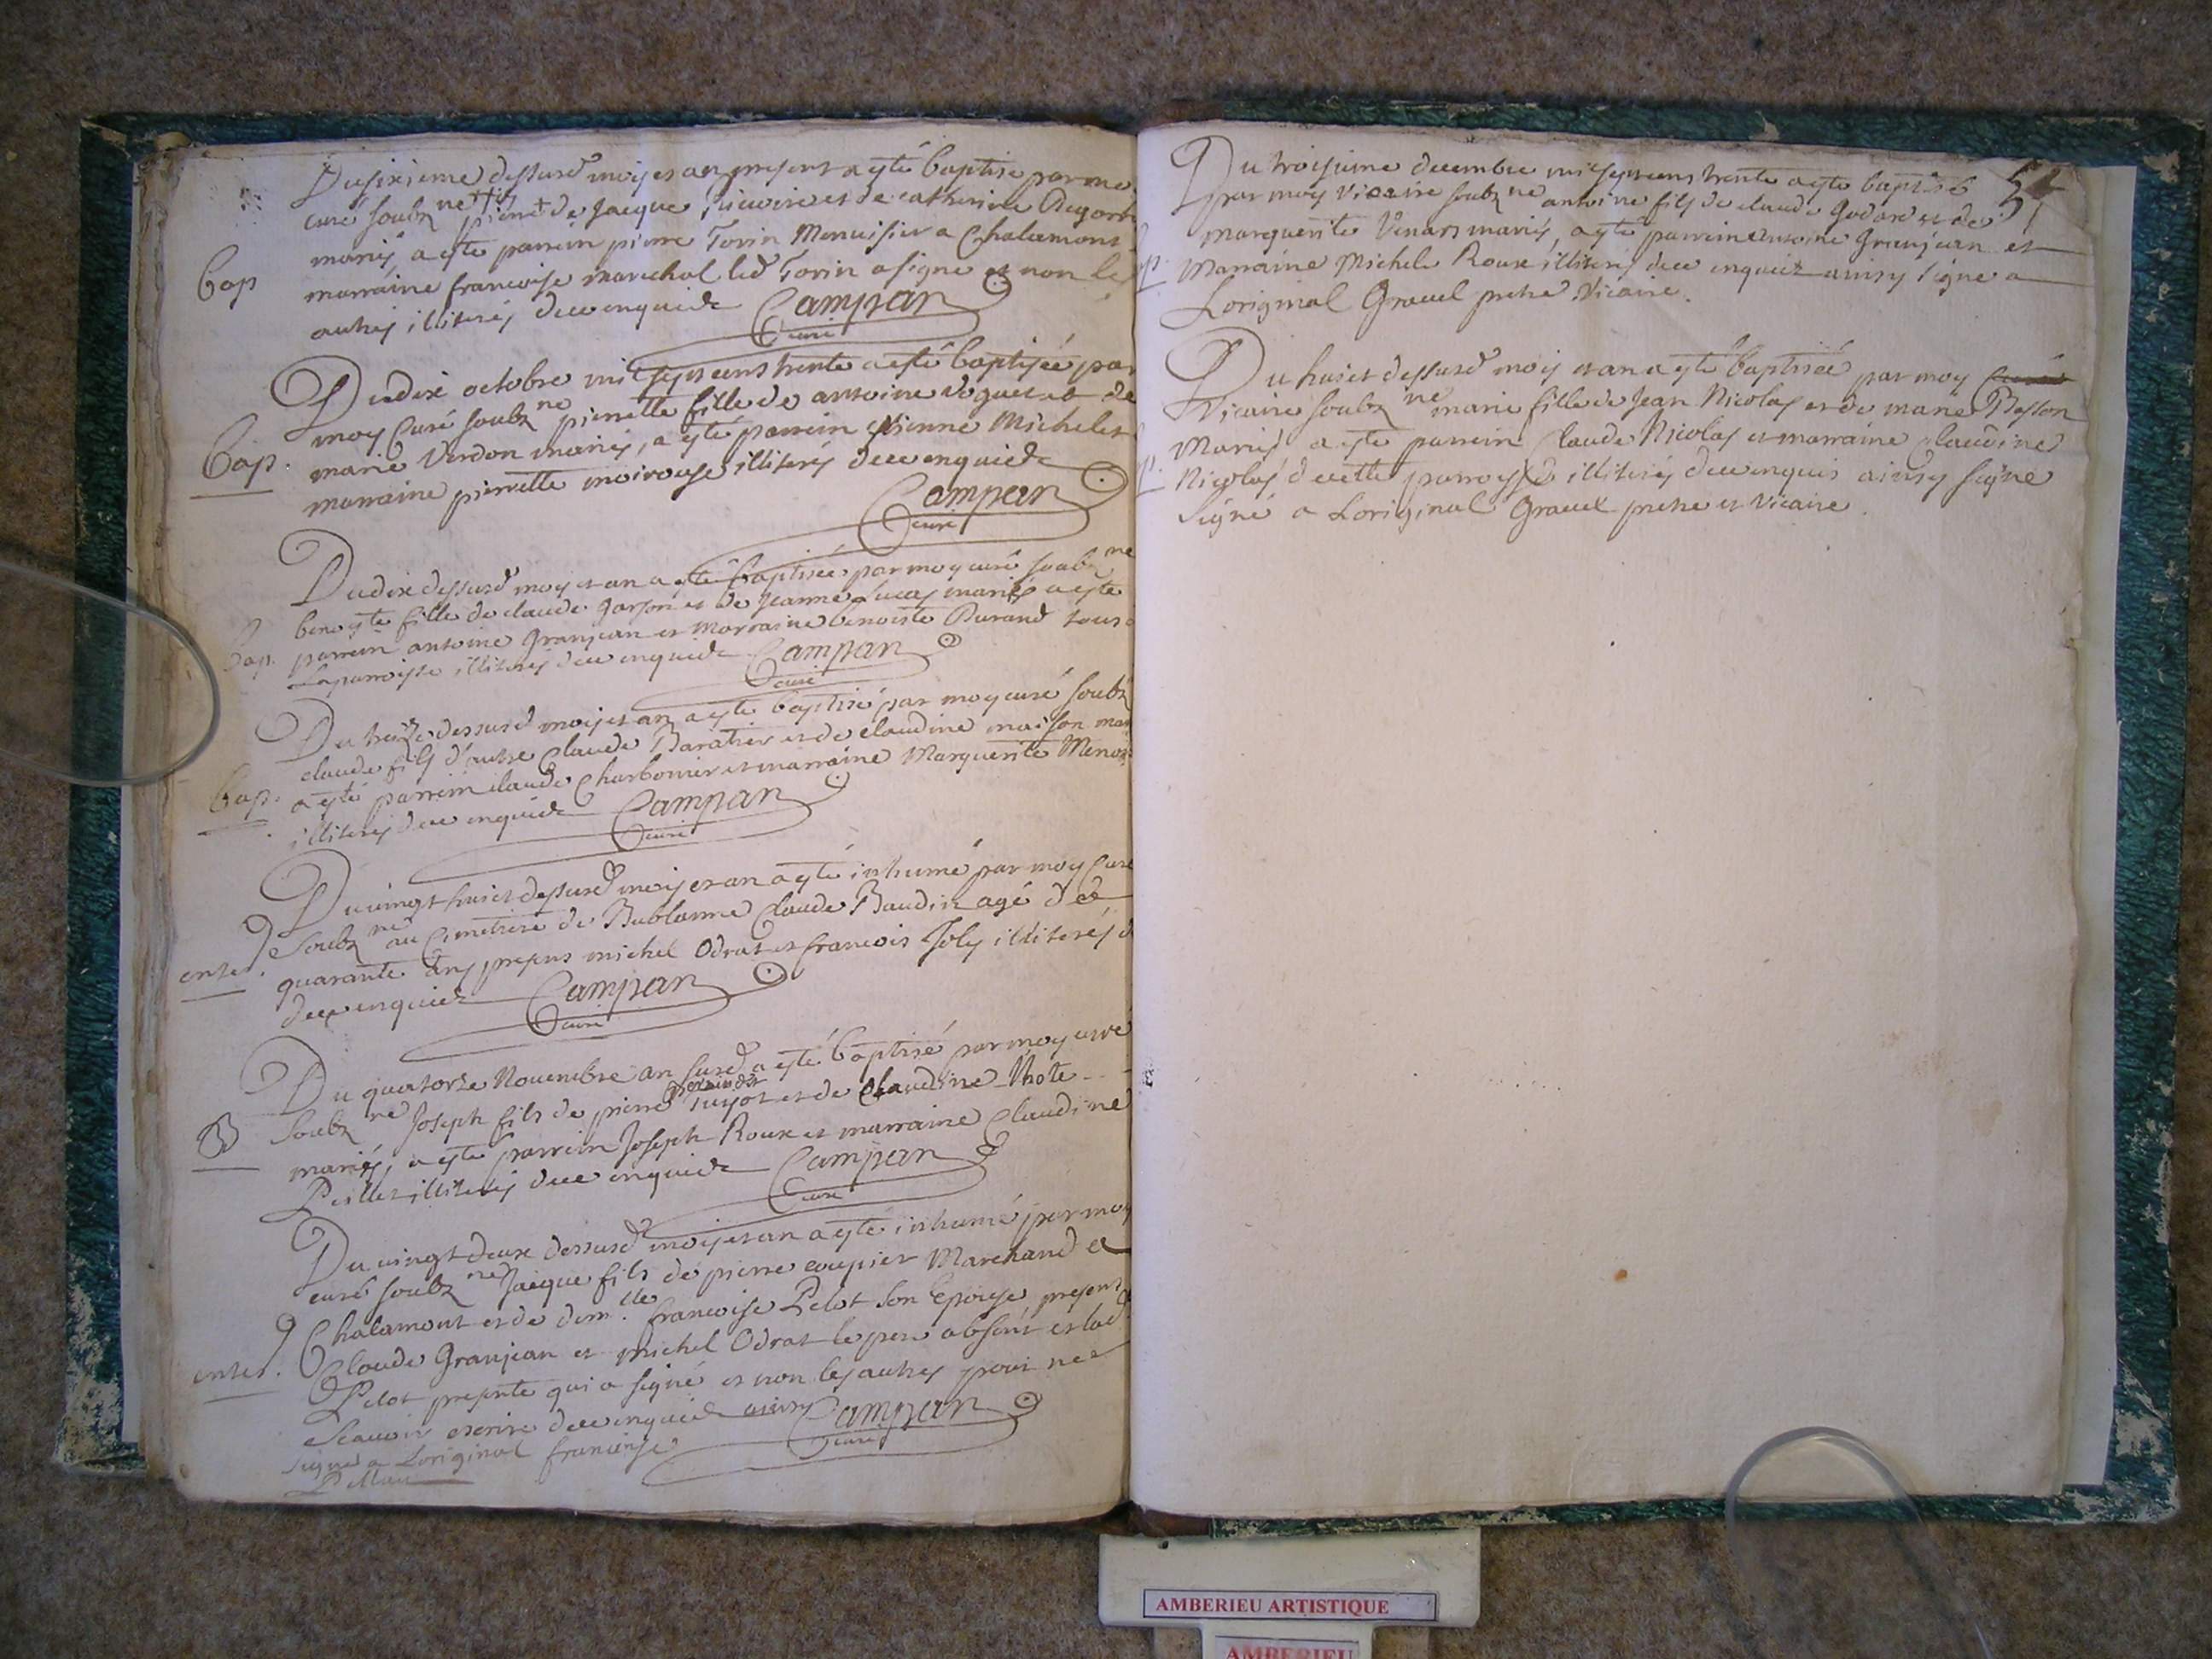 Du sixieme dessusd mois et an present a esté baptisé par mo
curé soubz ne pierre de Jacque et de catherine
Bap
mariés, a esté parrein pierre Torin Menuisier a Chalamont
marraine francoise marechal led Torin a signé et non les
autres illiterés de ce enquis
Campan
curé
Du dix octobre mil sept cens trente a esté baptisée par
moy Curé soubz ne pierrette fille de antoine et de
Bap.
marie Verdon mariés, a esté parrein etienne Michelet
marraine pierrette illiterés de ce enquis
Campan
curé
Du dix dessusd moy et an a esté baptisée par moy curé soubz ne
benoyte fille de claude et de Jeanne Lucas mariés a esté
Bap.
parrein antoine Granjean et marraine benoiste Durand tous
La parroisse illiterés de ce enquis
Campan
curé
Du treize dessusd mois et an a esté baptisé par moy curé soubz
claude fils d'autre Claude Baratier et de claudine maison mar
Bap.
a esté parrein claude Charbonier et marraine Marguerite
illiterés de ce enquis
Campan
curé
Du vingt huict dessusd mois et an a esté inhumé par moy Curé
soubz ne au Cimetiere de Bublanne Claude Baudin agé de
enter.
quarante ans presens michel Odrat et francois Joly illiterés
de ce enquis
Campan
curé
Du quatorze Novembre an susd a esté baptisé par moy curé
B
Soubz ne Joseph fils de pierre et de Claudine
mariés, a esté parrein Joseph Roux et marraine Claudine
illiterés de ce enquis
Campan
curé
Du vingt deux dessusd mois et an a esté inhumé par moy
curé soubz ne Jacque fils de pierre coupier Marchand a
Chalamont et de dem.lle francoise Pelot son Epouse, presens
enter.
Claude Granjean et michel Odrat le pere absent et lad
Pelot presente qui a signé et non les autres pour ne
scavoir escrire de ce enquis ainsy
Campan
curé
signé a Loriginal francoise
51
Du troisieme decembre mil sept cens trente a esté baptisé
par moy Vicaire soubz ne antoine fils de claude Godard et de
marguerite Venars mariés, a esté parrein antoine Granjean et
Marraine Michele Roux illiterés de ce enquis ainsy signé a
Loriginal Gravel pretre Vicaire.
Du huict dessusd mois et an a esté baptisée par moy
Vicaire soubz ne marie fille de Jean Nicolas et de marie
Mariés, a esté parrein Claude Nicolas et marraine Claudine
Nicolas de cette parroysse illiterés de ce enquis ainsy signé
signé a Loriginal Gravel pretre et Vicaire.
AMBERIEU ARTISTIQUE
AMBERIEU